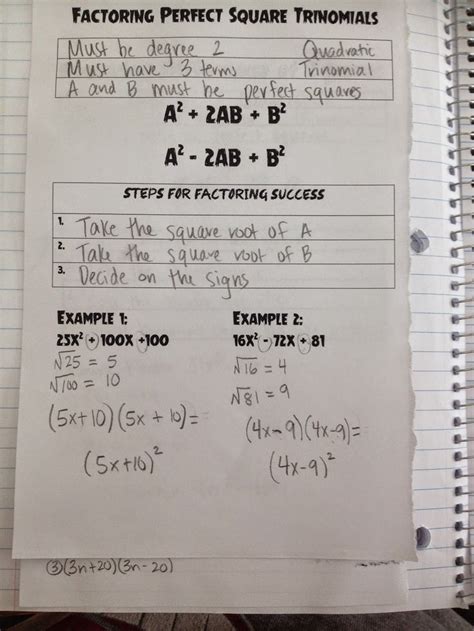 FACTORING PERFECT SQUARE TRINOMIALS
Must be degree 2 Quadratic
Must have 3 terms Trinomial
A and B must be perfect squares
A² + 2AB + B²
A² - 2AB + B²
STEPS FOR FACTORING SUCCESS
1. Take the square root of A
2. Take the square root of B
3. Decide on the signs
EXAMPLE 1: EXAMPLE 2:
25X² + 100X + 100 16X² - 72X + 81
√25 = 5 √16 = 4
√100 = 10 √81 = 9
(5x+10)(5x+10)= (4x-9)(4x-9)=
(5x+10)² (4x-9)²
③(3n+20)(3n-20)